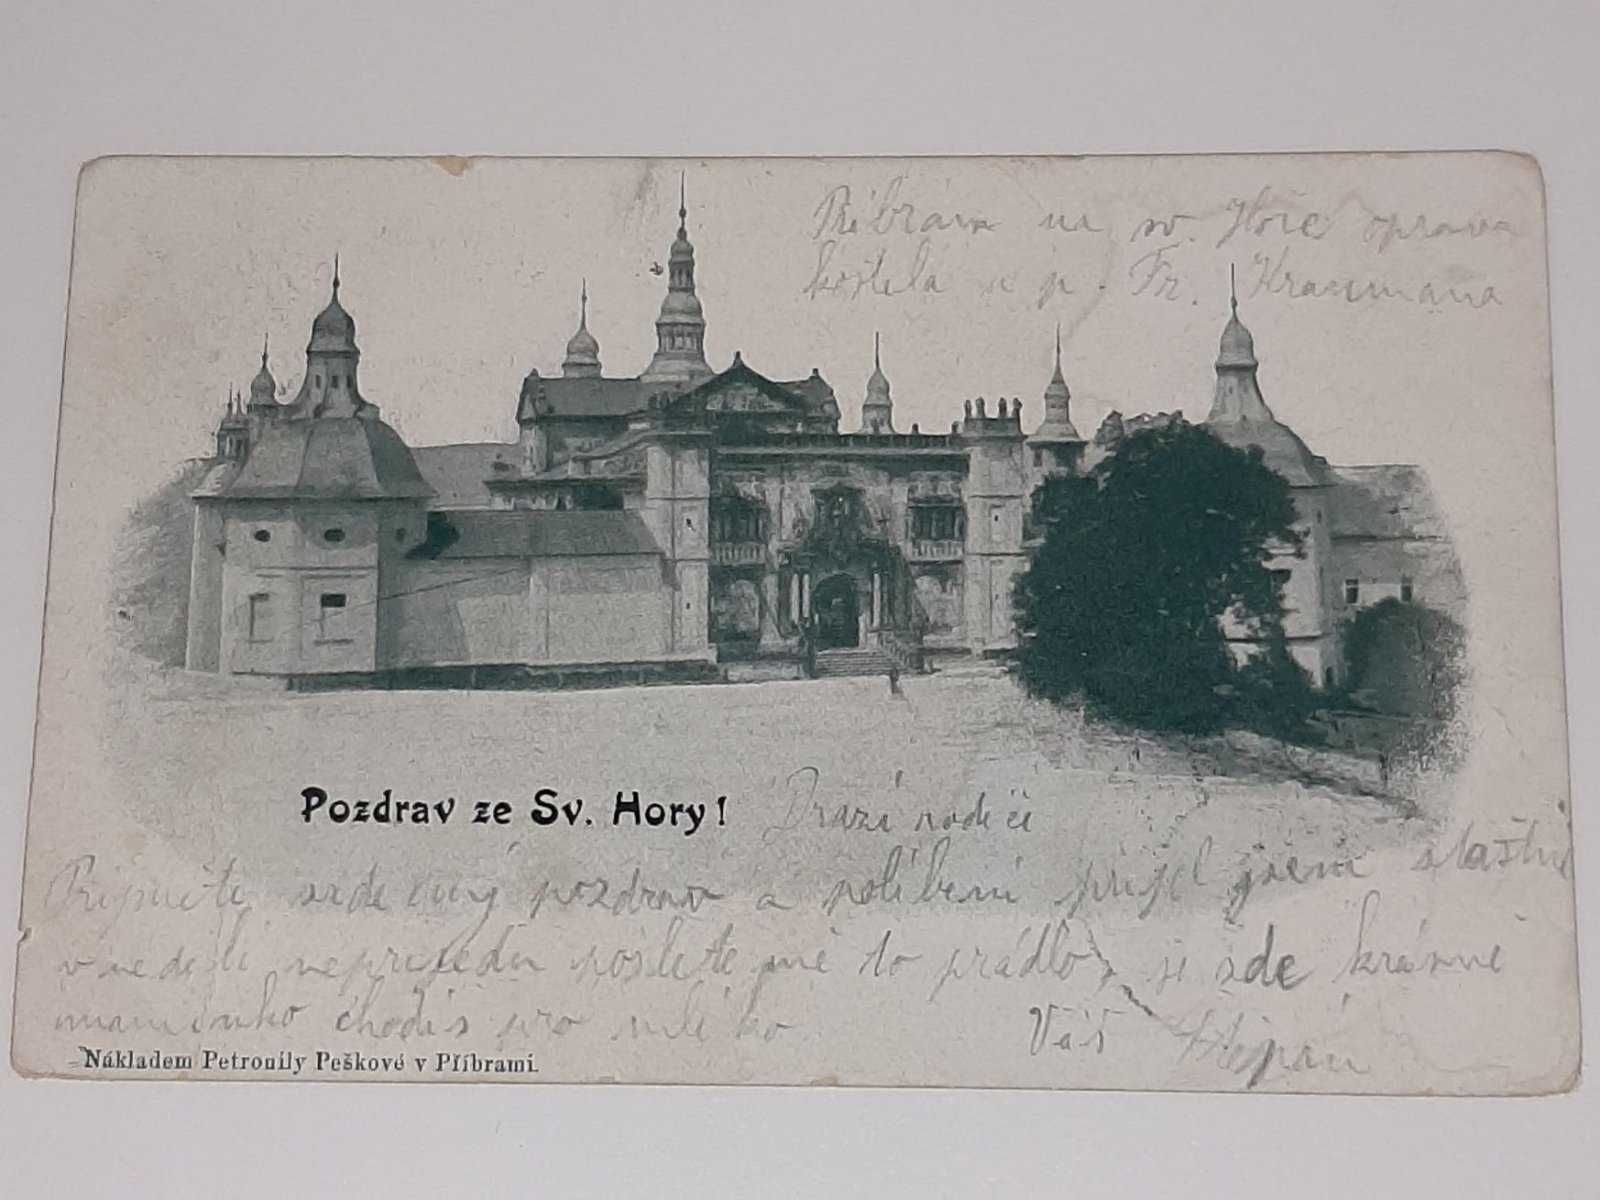 Příbram na sv. Hoře oprava
kostela u p. Fr. Kraumana
Pozdrav ze Sv. Hory!
Drazí rodiče
Přijměte srdečný pozdrav a políbení přijel jsem šťastně
v neděli nepřijedu pošlete mě to prádlo, je zde krásně
maminko chodis pro mléko
Váš Štěpán
Nákladem Petronily Peškové v Příbrami.